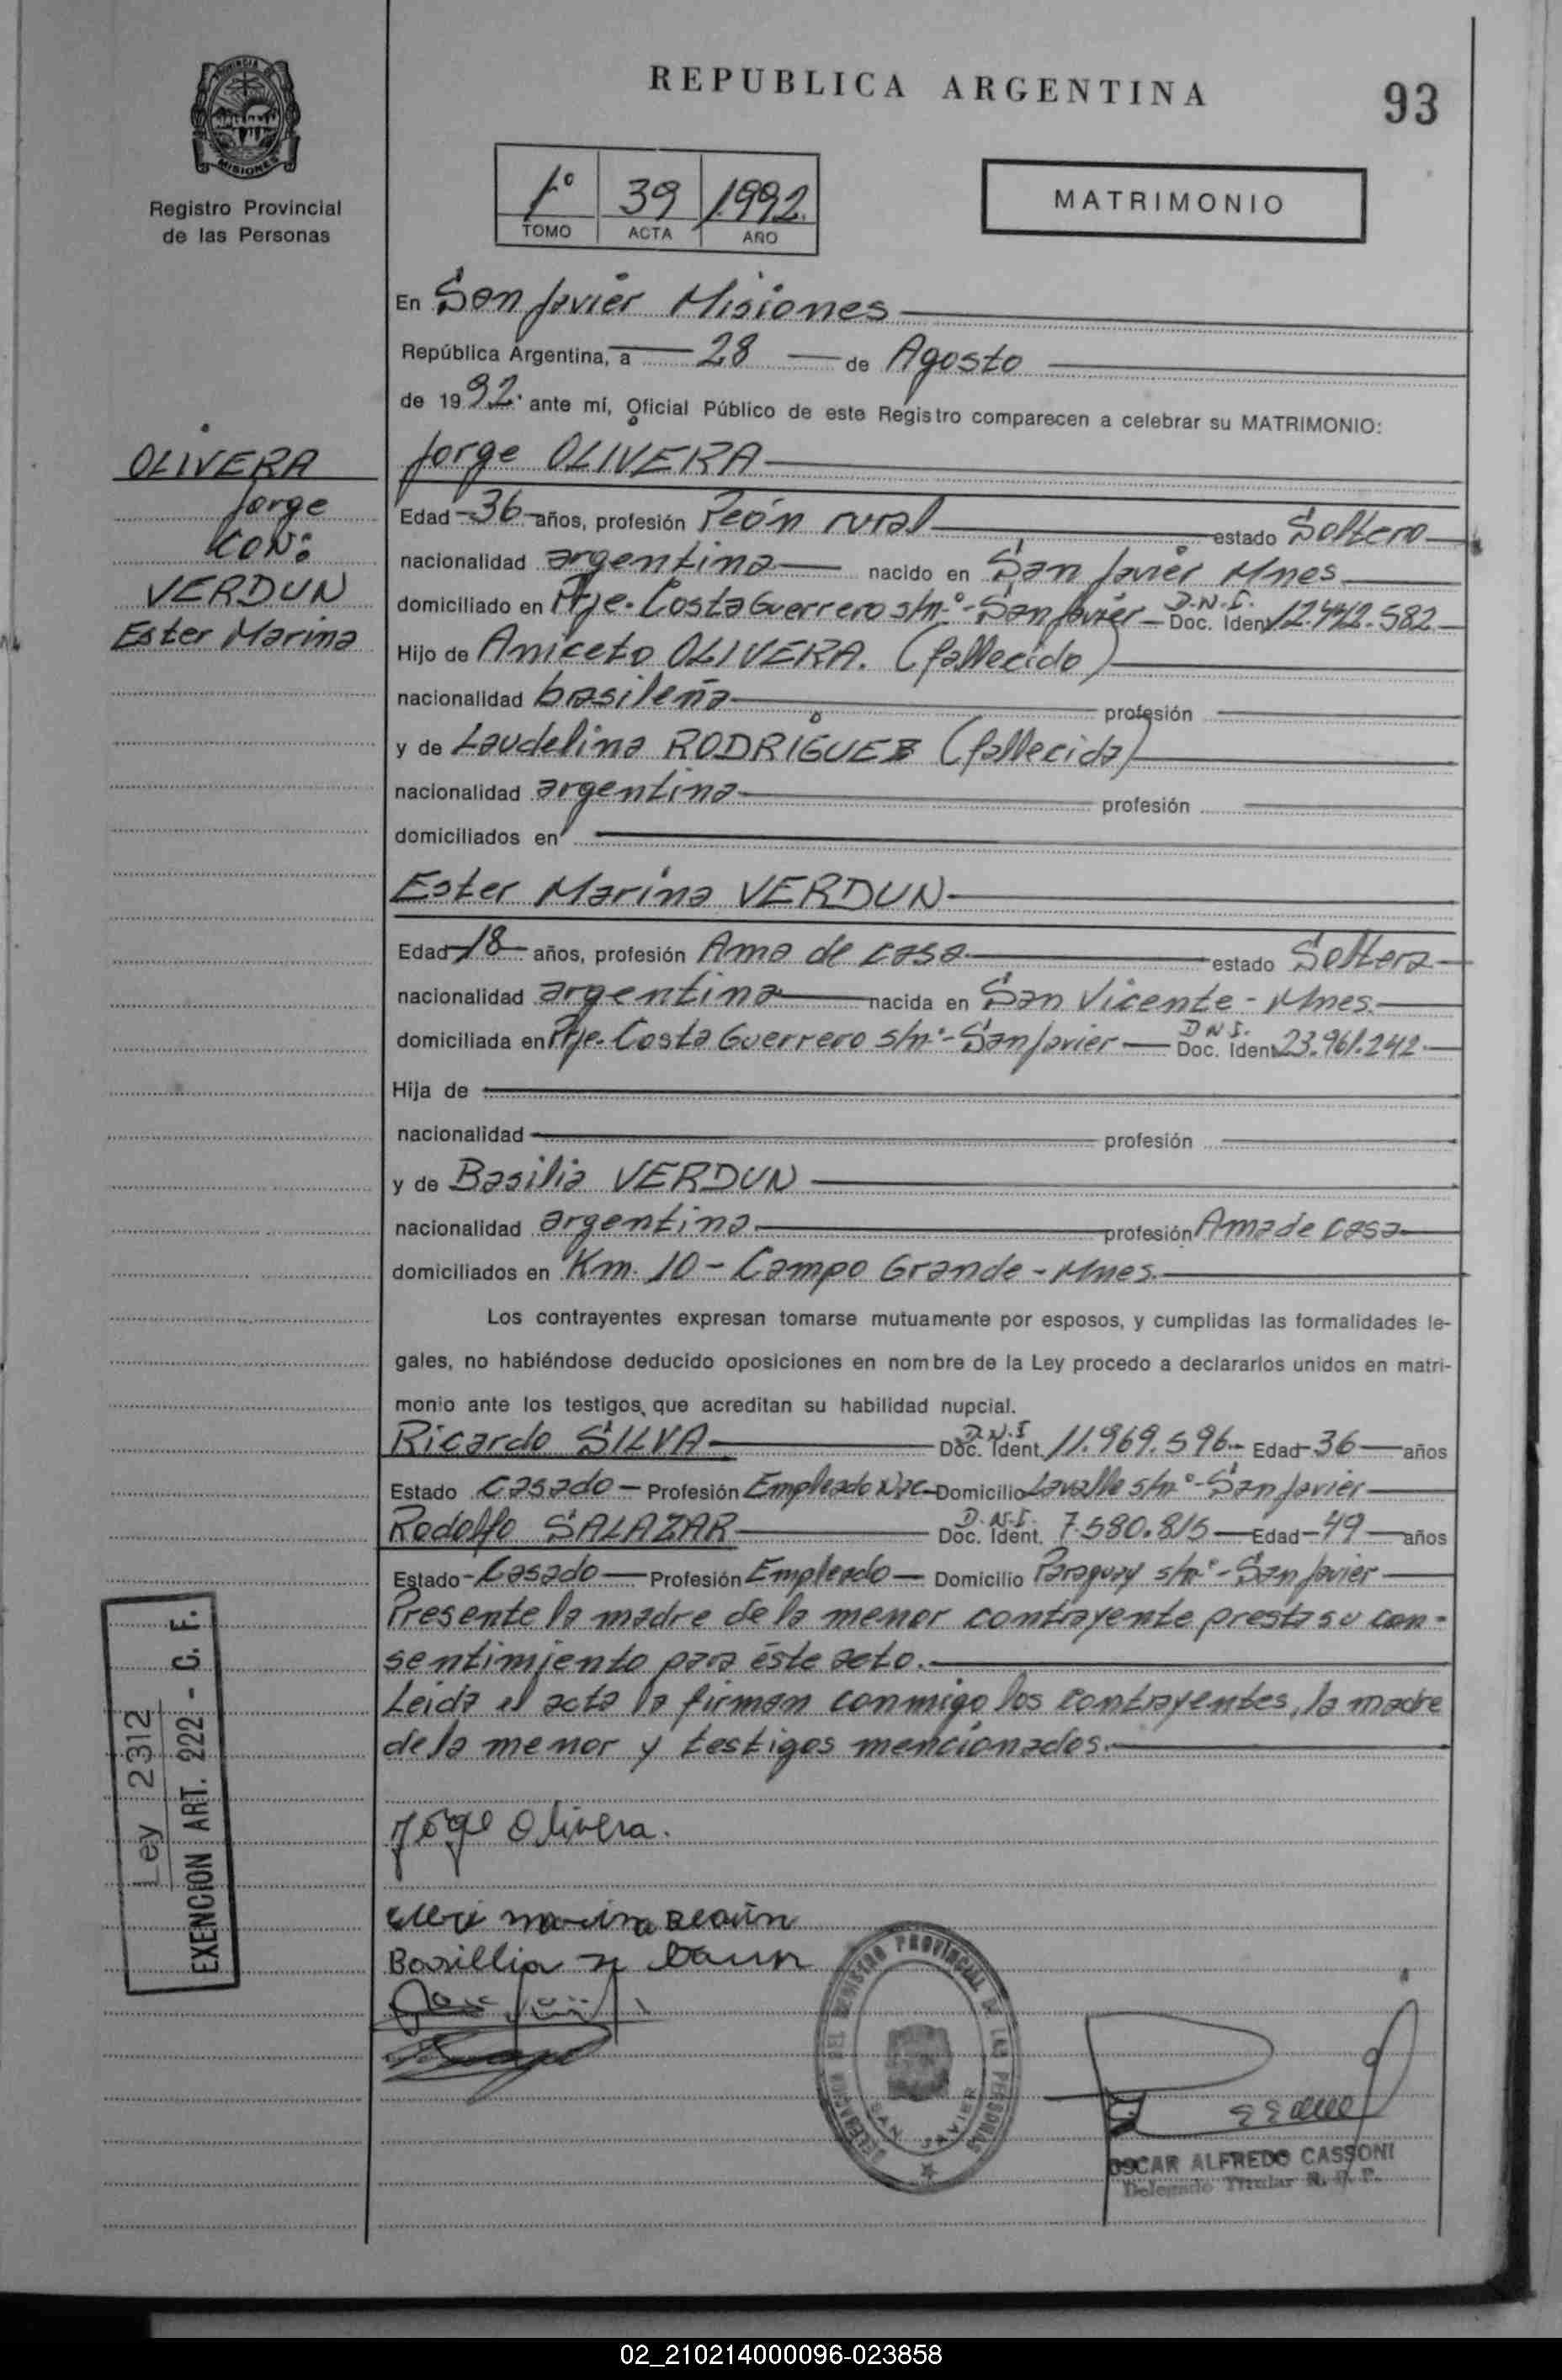 REPUBLICA ARGENTINA
93
PROVINCIA DE
MISIONES
Registro Provincial
de las Personas
1º 39 1992.
TOMO ACTA AÑO
MATRIMONIO
En San Javier Misiones
República Argentina, a 28 de Agosto
de 1992. ante mí, Oficial Público de este Registro comparecen a celebrar su MATRIMONIO:
OLIVERA
Jorge
CON:
VERDUN
Ester Marina
Jorge OLIVERA
Edad 36 años, profesión Peón rural estado Soltero
nacionalidad argentina nacido en San Javier Mnes
domiciliado en Pje. Costa Guerrero s/nº - San Javier D.N.I. Doc. Ident. 12.442.582
Hijo de Aniceto OLIVERA. (fallecido)
nacionalidad brasileña profesión
y de Laudelina RODRIGUEZ (fallecida)
nacionalidad argentina profesión
domiciliados en
Ester Marina VERDUN
Edad 18 años, profesión Ama de casa estado Soltera
nacionalidad argentina nacida en San Vicente - Mnes.
domiciliada en Pje. Costa Guerrero s/nº - San Javier D.N.I. Doc. Ident. 23.961.242
Hija de
nacionalidad profesión
y de Basilia VERDUN
nacionalidad argentina profesión Ama de casa
domiciliados en Km. 10 - Campo Grande - Mnes.
Los contrayentes expresan tomarse mutuamente por esposos, y cumplidas las formalidades le-
gales, no habiéndose deducido oposiciones en nombre de la Ley procedo a declararlos unidos en matri-
monio ante los testigos que acreditan su habilidad nupcial.
Ricardo SILVA D.N.I Doc. Ident. 11.969.596 Edad 36 años
Estado Casado - Profesión Empleado Nac Domicilio Lavalle s/nº - San Javier
Rodolfo SALAZAR D.N.I. Doc. Ident. 7.580.815 Edad 49 años
Estado Casado Profesión Empleado Domicilio Paraguay s/nº - San Javier
Presente la madre de la menor contrayente presta su con-
sentimiento para éste acto.
Leida el acta la firman conmigo los contrayentes, la madre
de la menor y testigos mencionados.
Ley 2312
EXENCION ART. 222 - C. F.
Jorge Olivera.
marina
DELEGACION DEL REGISTRO PROVINCIAL DE LAS PERSONAS
SAN JAVIER
OSCAR ALFREDO CASSONI
Delegado Titular R. P. P.
02_210214000096-023858